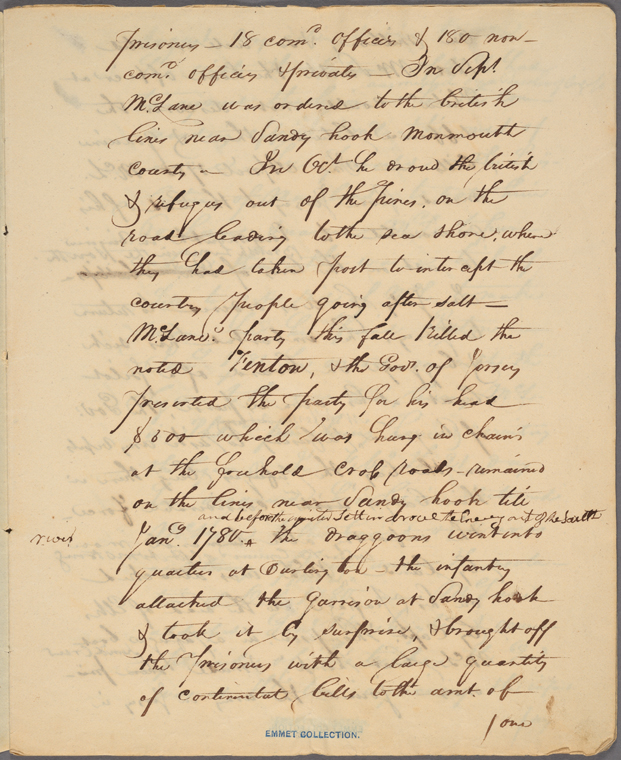 prisoners – 18 comd. officers & 180 non–
comd officers & privates – In Sept.
McLane was ordered to the british
lines near Sandy hook Monmouth
county – In Oct. he drove the british
& refugees out of the Pines. on the
road leading to the sea shore. where
they had taken post to intercept the
country people going after salt –
McLane's party this fall killed the
noted Fenton, & the Govr. of Jersey
presented the party for his head
$500 which was hung in chains
at the cross roads – remained
on the lines near Sandy hook till
and before the winter sett in drove the Enemy out of the
Jany. 1780 – the draggoons went into
quarters at Burlington – the infantry
attacked the Garrison at Sandy hook
& took it by surprise, & brought off
the prisoners with a large quantity
of continental bills to the amt. of
one
EMMET COLLECTION.